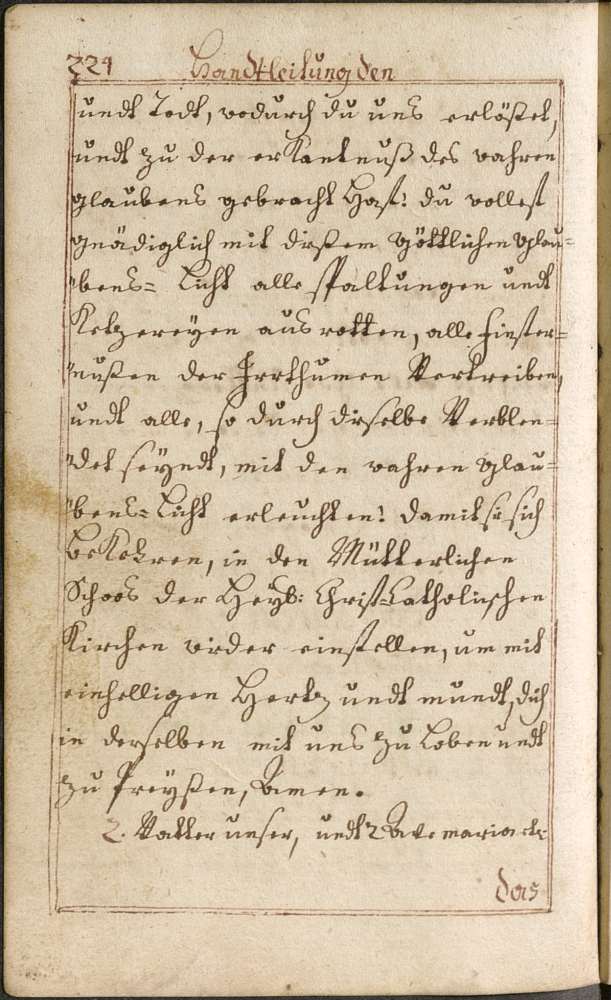 224 Handtleitung den
undt Todt, wodurch du uns erlößet,
undt zu der erkantnuß des wahren
glaubens gebracht hast: du wollest
gnädiglich mit dißem göttlichen glau=
bens= Licht alle spaltungen undt
Ketzereyen ausrotten, alle finster=
nußen der Irrthumen Vertreiben,
undt alle, so durch dieselbe Verblen=
det seyndt, mit den wahren glau=
bens=Licht erleuchten: damit sie sich
bekehren, in den Mütterlichen
Schoos der Heyl: Christ-Catholischen
Kirchen wider einstellen, um mit
einhelligen Hertz undt mundt, dich
in derselben mit uns zu Loben undt
zu Preyßen, Amen.
2. Vatter unser, undt 2 Ave maria etc
das